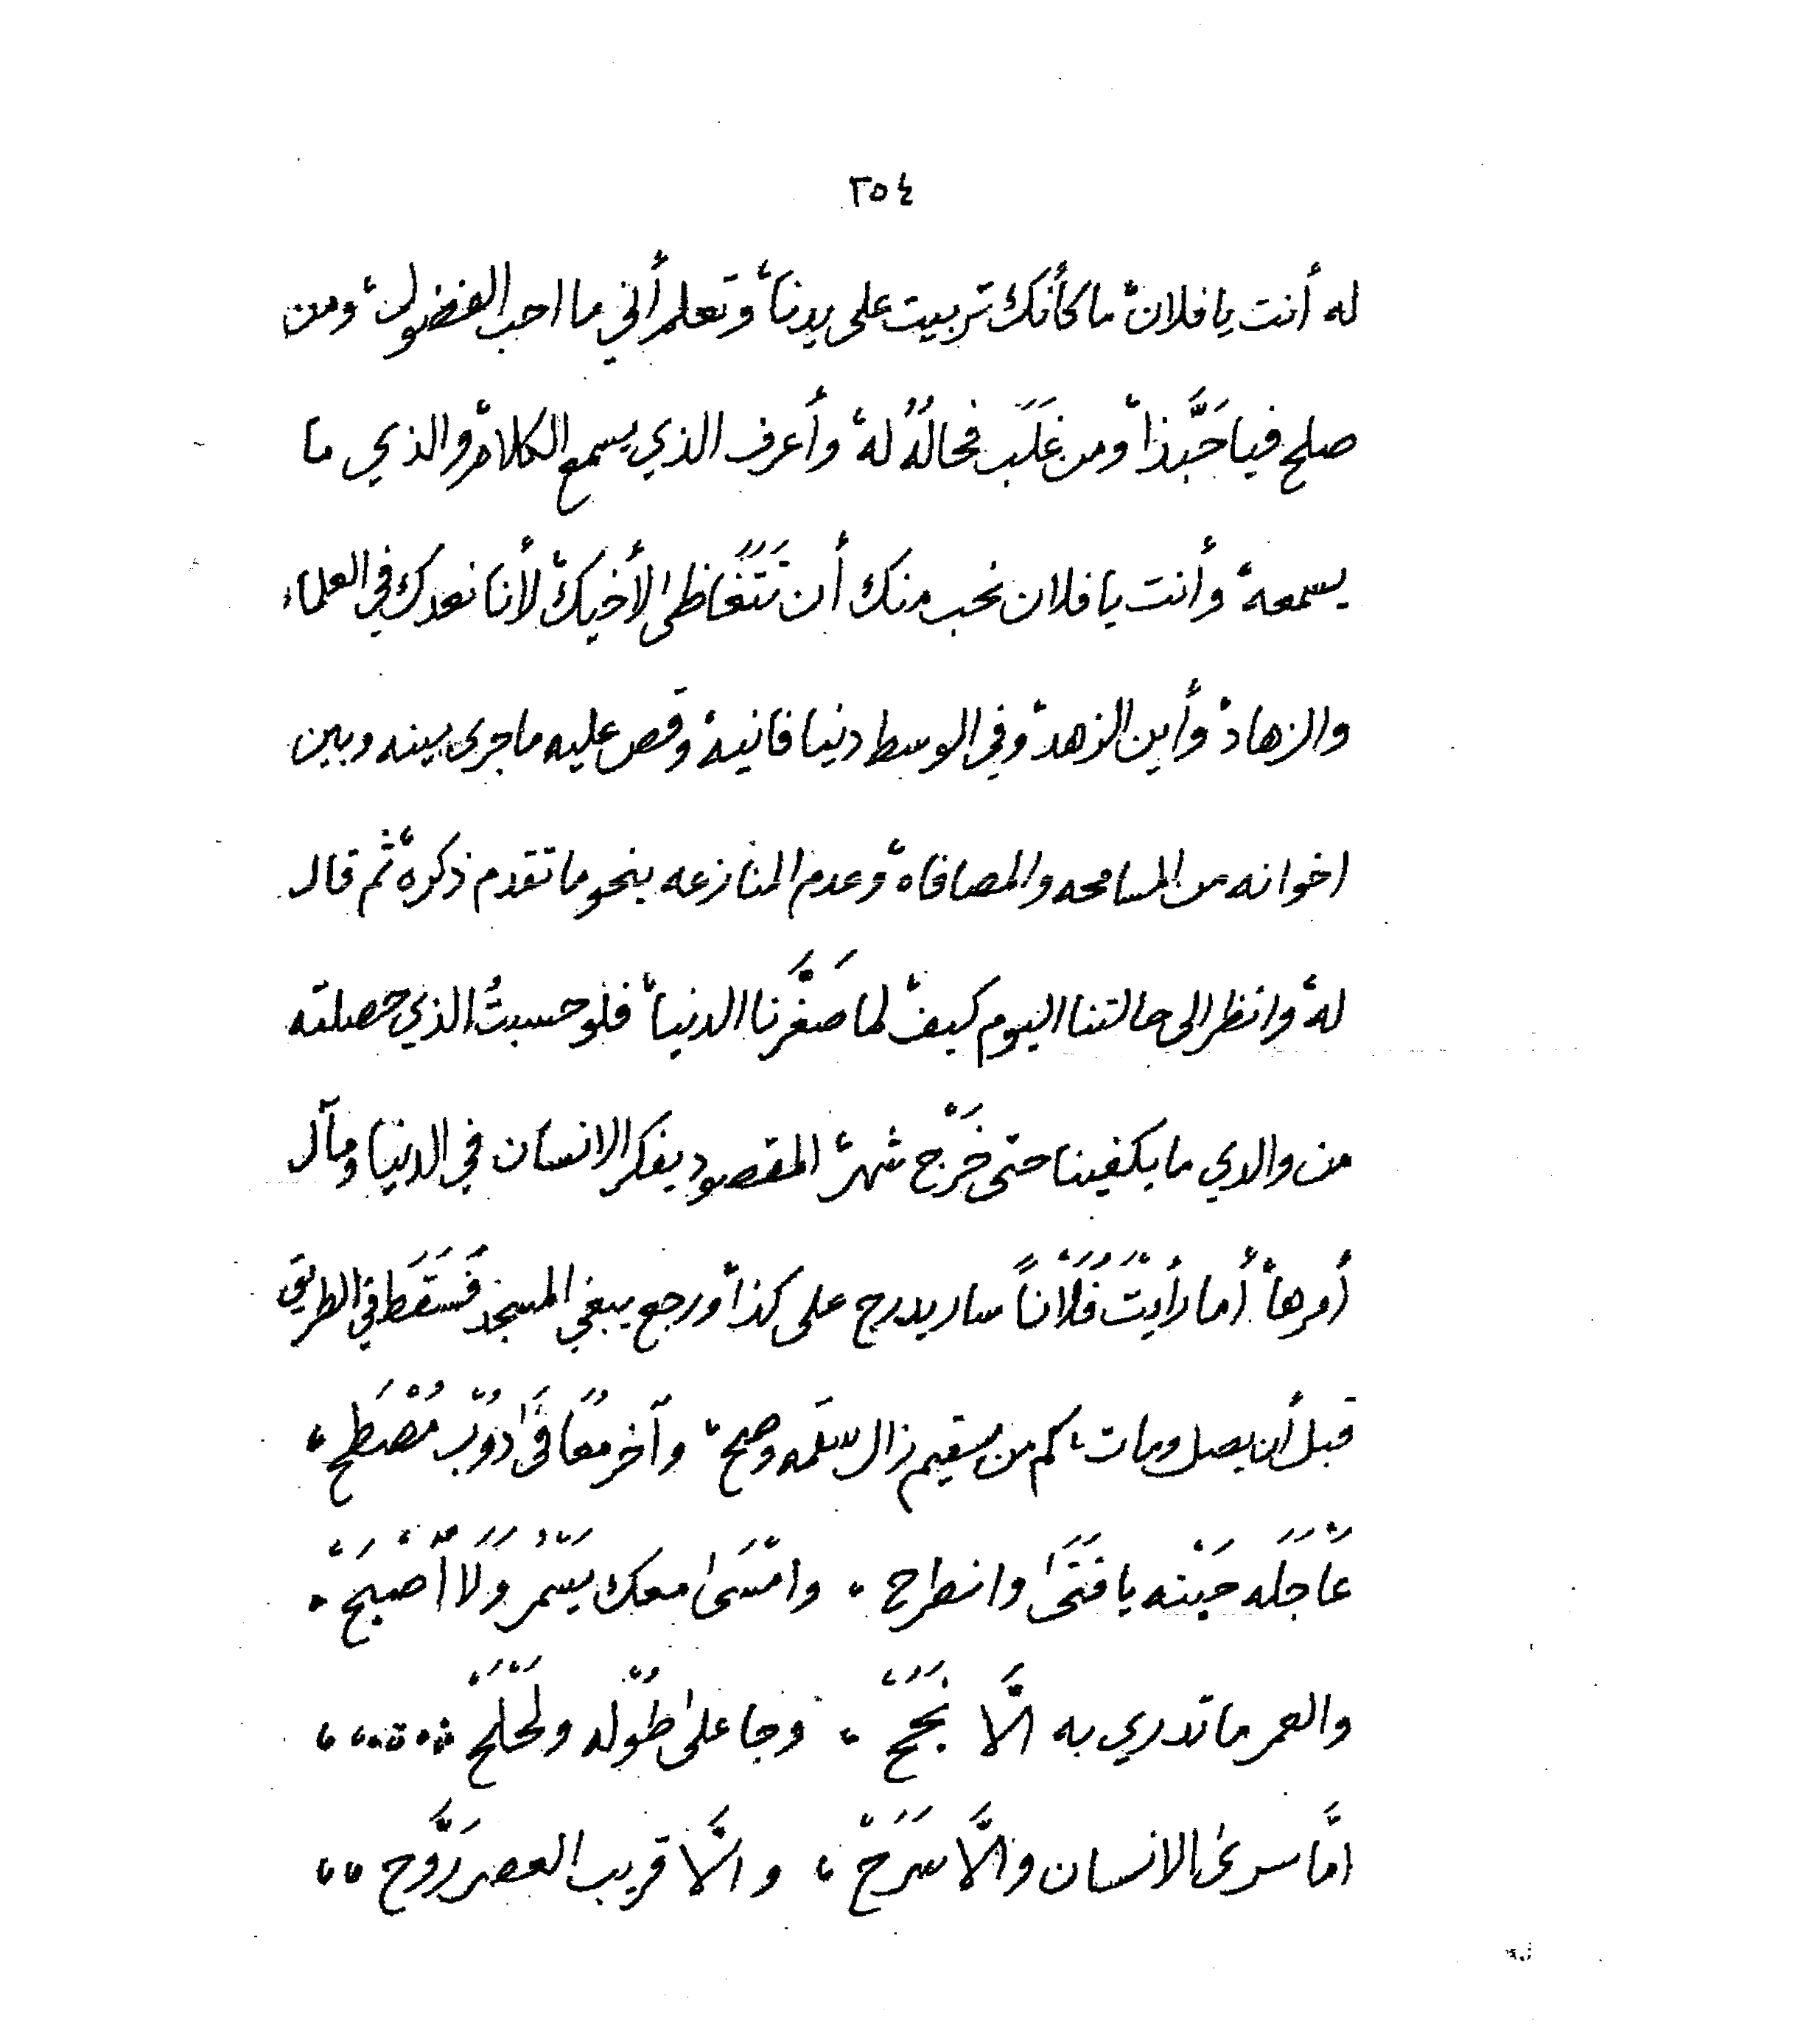 ٢٥٤
له أنت يا فلان، ما كأنك تربيت على يدنا، وتعلم أني ما احب الفضول، ومن
صلح فيا حَبَّذا، ومن غَلَب فحالُهُ له، وأعرف الذي يسمع الكلام، والذي ما
يسمعه، وأنت يا فلان نحب منك أن تَتَغَاظى لأخيك، لأنا نعدك في العلماء
والزهاد، وأين الزهد، وفي الوسط دنيا فانيه، وقص عليه ما جرى بينه وبين
اخوانه من المسامحه والمصافاه، وعدم المنازعه بنحو ما تقدم ذكره، ثم قال
له، وانظر الى حالتنا اليوم كيف، لما صَغَّرنا الدنيا، فلو حسبتُ الذي حصلته
من والدي ما يكفينا حتى خَرْج شهر، المقصود يفكر الانسان في الدنيا ومآل
أمرها، أما رأيتْ فُلَاناً سار يدرج على كذا، ورجع يبغي المسجد فَسَقَطَ في الطريق
قبل أن يصل ومات، كم من سقيم زال سقمه وصح، وآخر معافَىٰ دَوُبْ مُصْطَح،
عَاجَلَه حَيْنه يا فَتَىٰ وانطرح، وامْسَىٰ معك يَسْمُرْ وَلَا أَصْبَحْ،
والعمر ما تدري به الَّا نَجَحْ، وجا علىٰ طُوْله ولَحْلَحْ،
امَّا سرىٰ الانسان والَّا سَرَحْ، والَّا قريب العصر رَوَّح،،